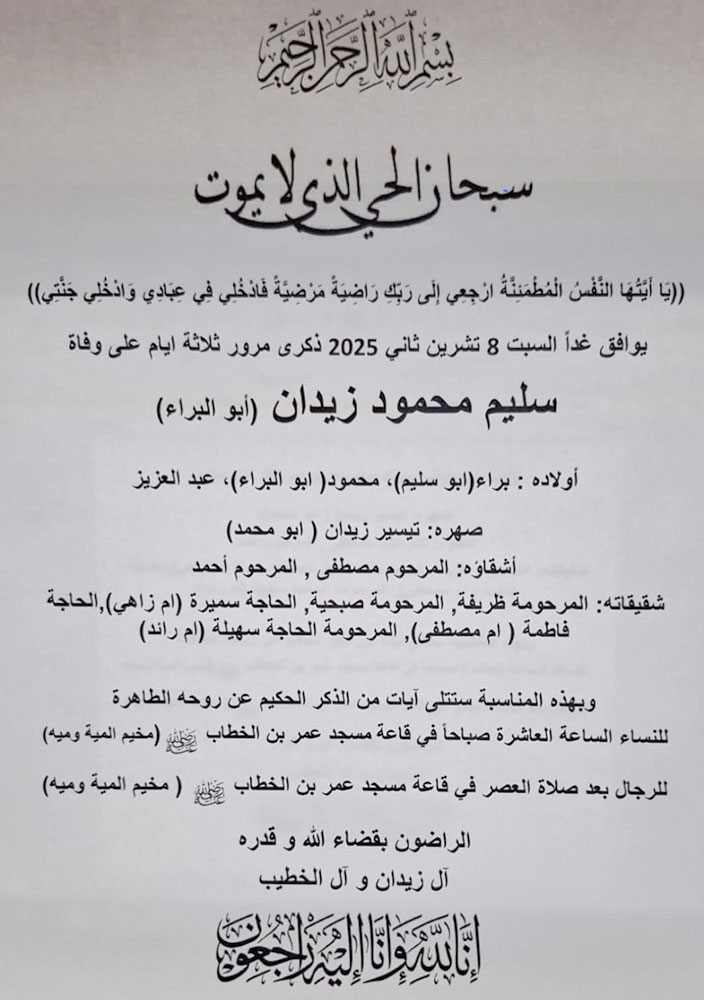 بِسْمِ اللَّهِ الرَّحْمَنِ الرَّحِيمِ
سبحان الحي الذي لا يموت
((يَا أَيَّتُهَا النَّفْسُ الْمُطْمَئِنَّةُ ارْجِعِي إِلَى رَبِّكِ رَاضِيَةً مَرْضِيَّةً فَادْخُلِي فِي عِبَادِي وَادْخُلِي جَنَّتِي))
يوافق غداً السبت 8 تشرين ثاني 2025 ذكرى مرور ثلاثة ايام على وفاة
سليم محمود زيدان (أبو البراء)
أولاده : براء(ابو سليم)، محمود( ابو البراء)، عبد العزيز
صهره: تيسير زيدان ( ابو محمد)
أشقاؤه: المرحوم مصطفى , المرحوم أحمد
شقيقاته: المرحومة ظريفة, المرحومة صبحية, الحاجة سميرة (ام زاهي),الحاجة
فاطمة ( ام مصطفى), المرحومة الحاجة سهيلة (ام رائد)
وبهذه المناسبة ستتلى آيات من الذكر الحكيم عن روحه الطاهرة
للنساء الساعة العاشرة صباحاً في قاعة مسجد عمر بن الخطاب رضي الله عنه (مخيم المية وميه)
للرجال بعد صلاة العصر في قاعة مسجد عمر بن الخطاب رضي الله عنه ( مخيم المية وميه)
الراضون بقضاء الله و قدره
آل زيدان و آل الخطيب
إِنَّا لِلَّهِ وَإِنَّا إِلَيْهِ رَاجِعُونَ